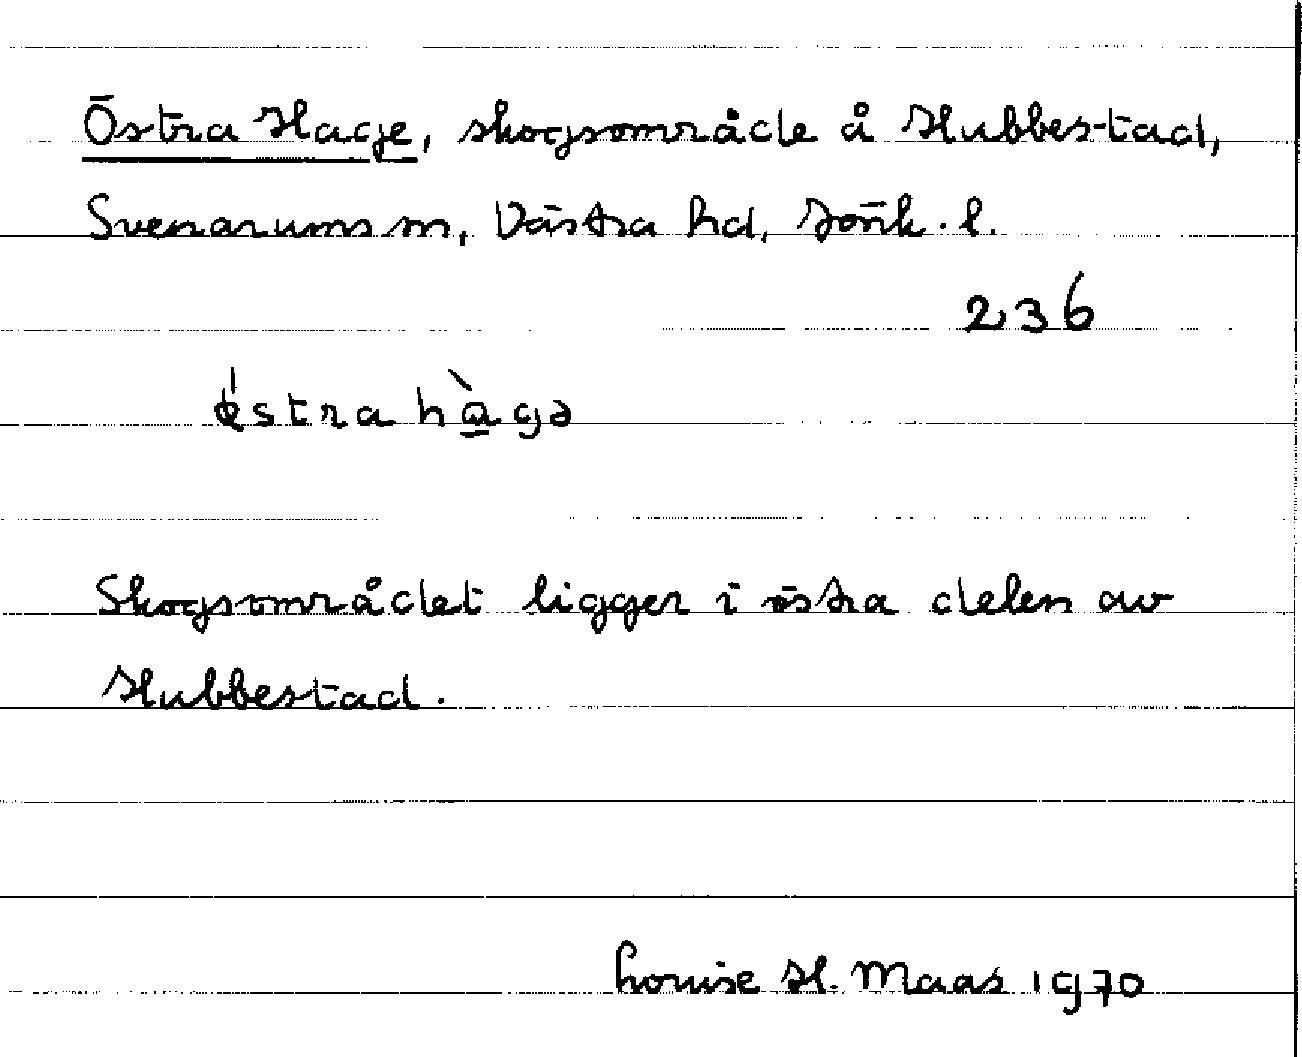 Östra Hage, skogsområde å Hubbestad,
Svenarums sn, Västra hd, Jönk. l.
236
ǿstra hàgə
Skogsområdet ligger i östra delen av
Hubbestad.
Louise H. Maas 1970